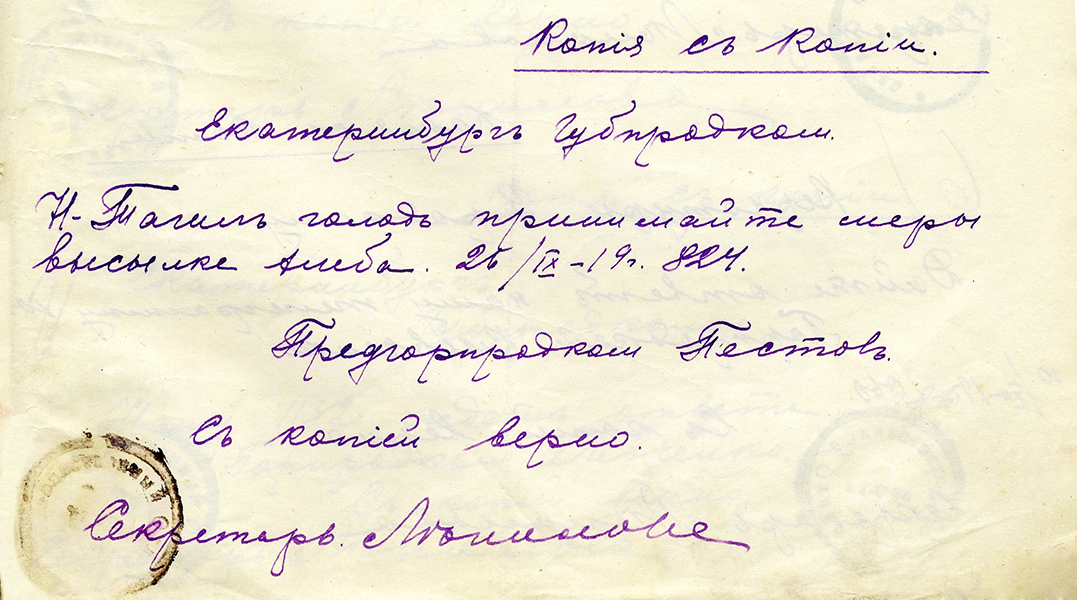 Копія съ копіи.
Екатеринбургъ Губпродком.
Н-Тагилъ голодъ принимайте меры
высылке хлеба. 26/IX-19г. 824.
Предгорпродком Пестовъ.
Съ копіей верно.
Секретарь.